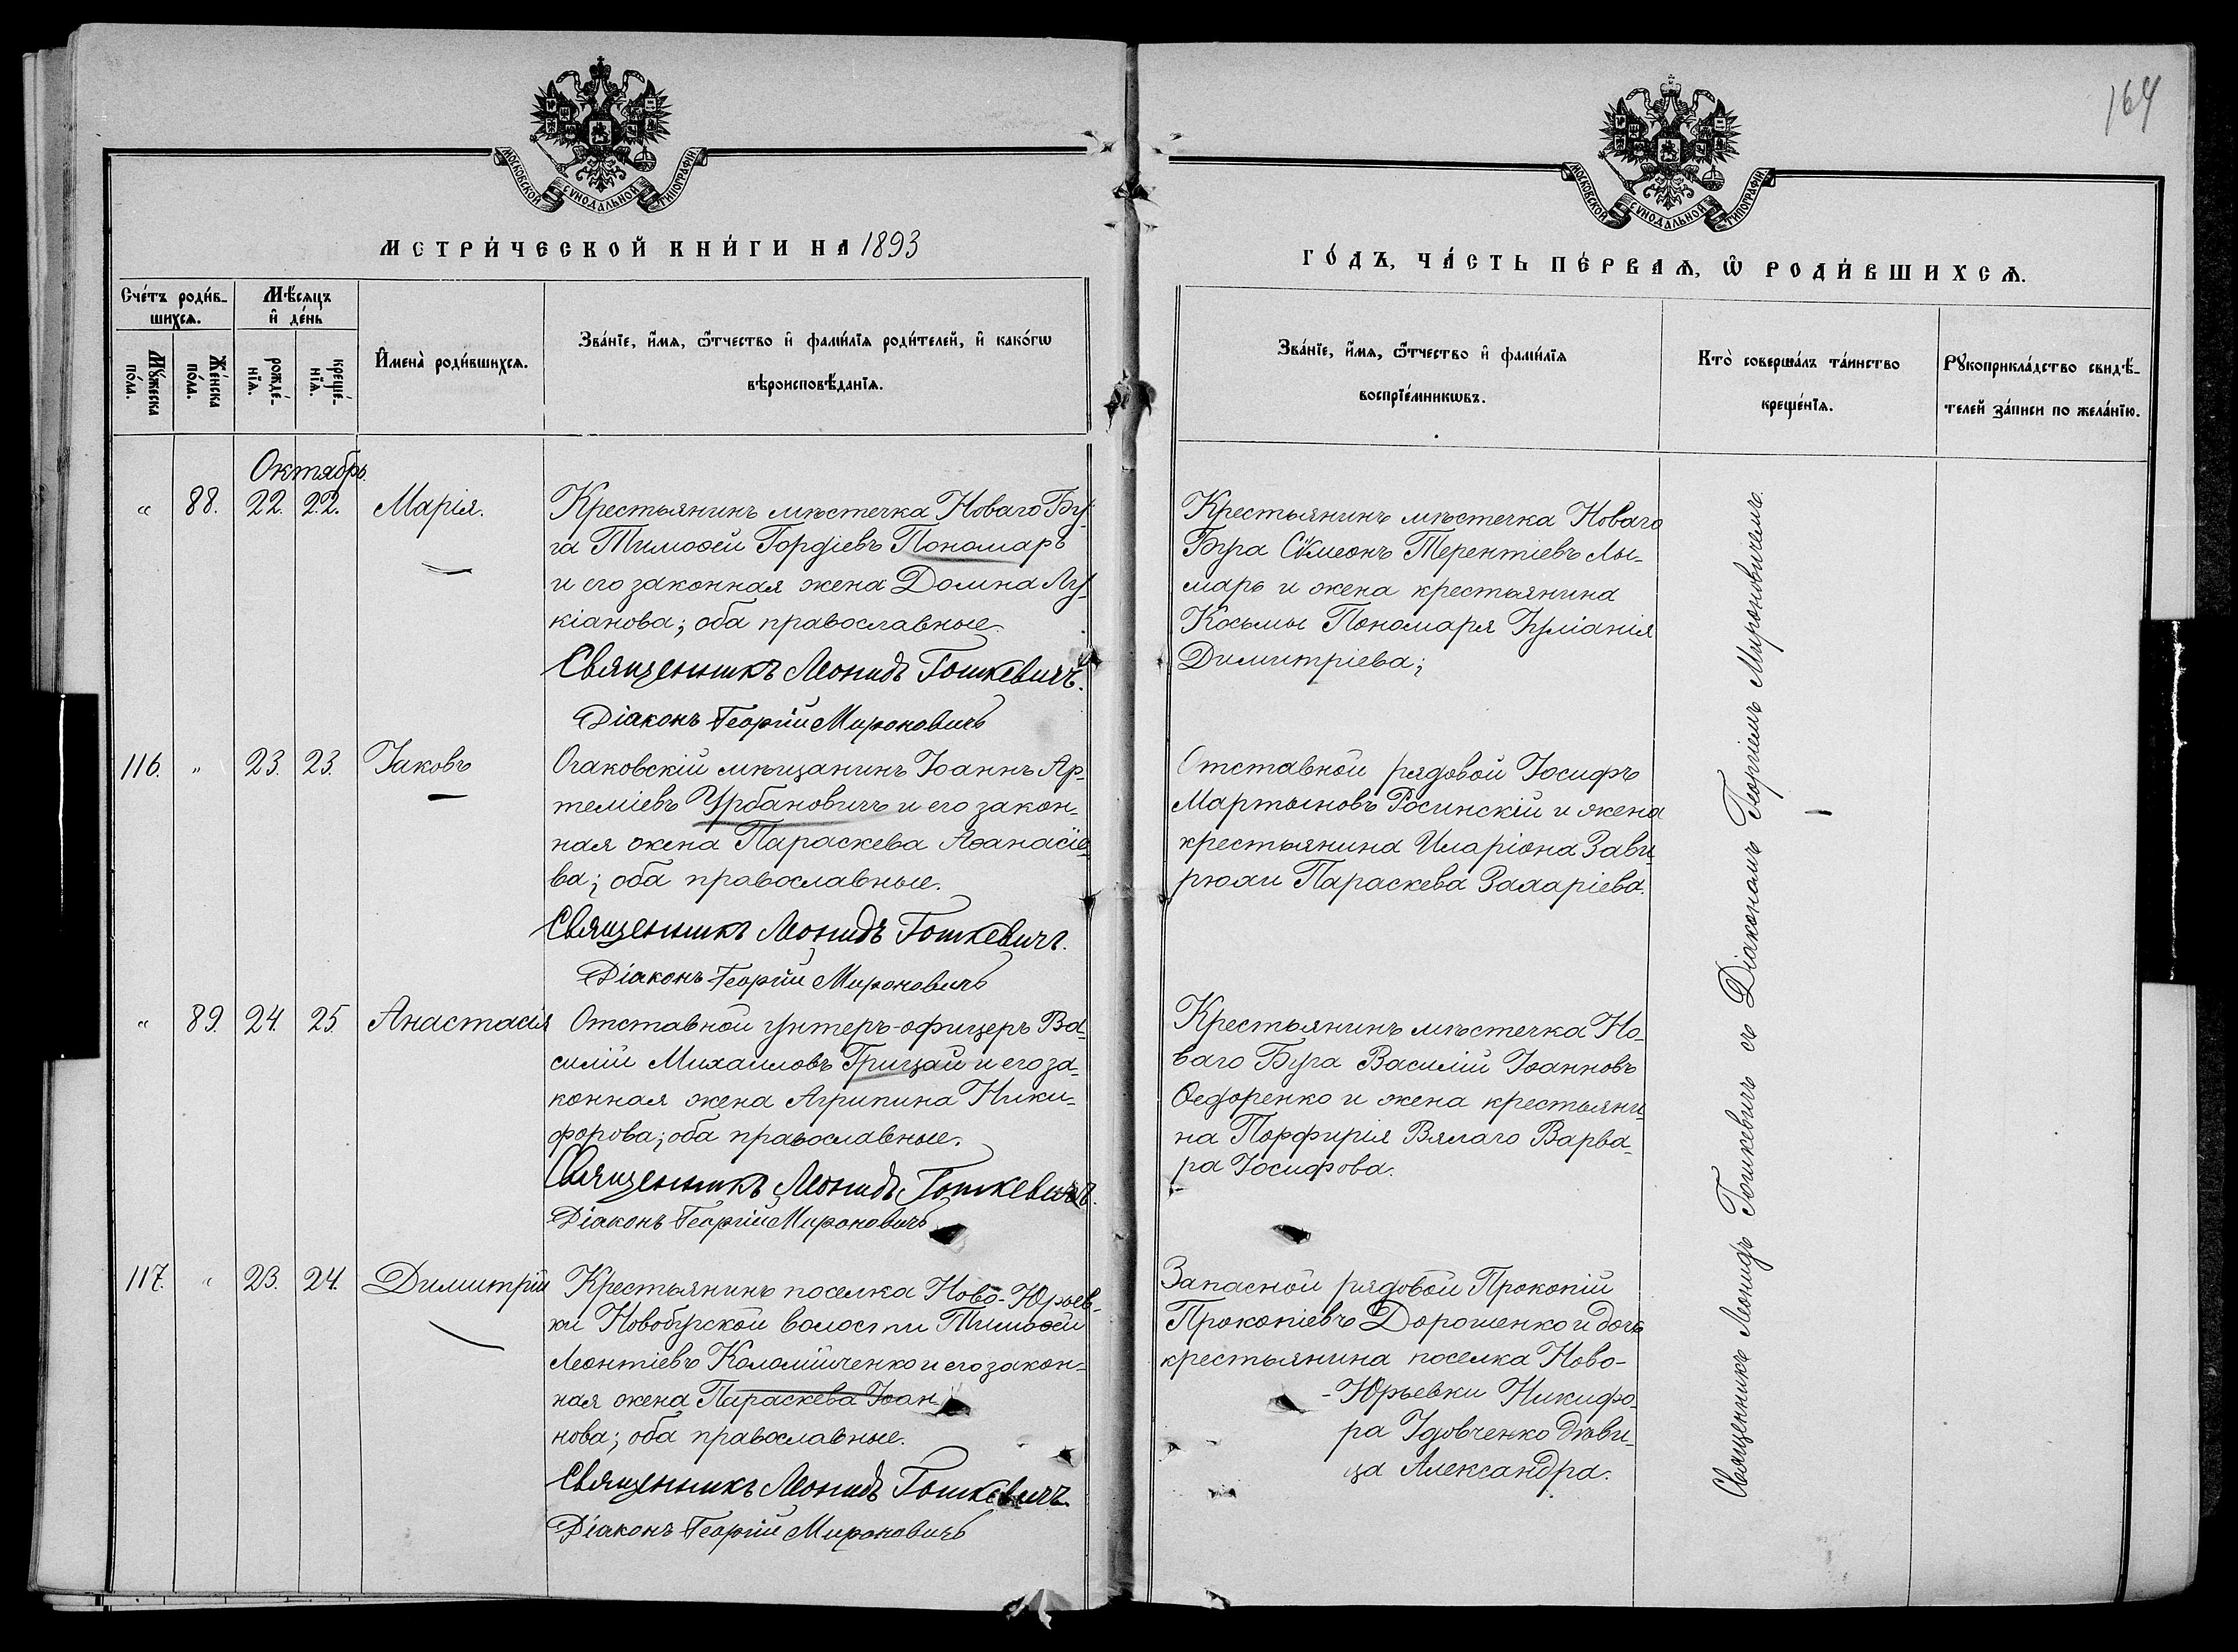 164
МОСКОВСКОЙ СУНОДАЛЬНОЙ ТИПОГРАФІИ
МОСКОВСКОЙ СУНОДАЛЬНОЙ ТИПОГРАФІИ
МЕТРИ́ЧЕСКОЙ КНИ́ГИ НА 1893
ГО́ДЪ, ЧА́СТЬ ПЕ́РВАѦ, Ѡ РОДИ́ВШИХСѦ.
Сче́тъ роди́в-
шихсѧ.
Мѣ́сѧцъ
и де́нь
Мꙋ́жеска
по́ла.
Же́нска
по́ла.
рожде́-
нїѧ.
креще́-
нїѧ.
Имена̀ роди́вшихсѧ.
Зва́нїе, и́мѧ, ѻ́тчество и фами́лїѧ роди́телей, и како́гѡ
вѣроисповѣ́данїѧ.
Зва́нїе, и́мѧ, ѻ́тчество и фами́лїѧ
воспрїе́мникѡвъ.
Кто̀ соверша́лъ та́инство
креще́нїѧ.
Рꙋкоприкла́дство свидѣ́-
телей за́писи по жела́нїю.
Октябрь
" 88. 22. 22. Марія.
Крестьянинъ мѣстечка Новаго Бу-
га Тимоѳей Гордіевъ Пономарь
и его законная жена Домна Лу-
кіанова; оба православные.
Священникъ Леонидъ Гошкевичъ.
Діаконъ Георгій Мироновичъ
Крестьянинъ мѣстечка Новаго
Буга Сѵмеонъ Терентіевъ Лы-
марь и жена крестьянина
Косьмы Пономаря Іуліанія
Димитріева;
116. " 23. 23. Іаковъ
Очаковскій мѣщанинъ Іоаннъ Ар-
теміевъ Урбановичъ и его закон-
ная жена Параскева Аѳанасіе-
ва; оба православные.
Священникъ Леонидъ Гошкевичъ.
Діаконъ Георгій Мироновичъ
Отставной рядовой Іосифъ
Мартыновъ Росинскій и жена
крестьянина Иларіона Зави-
рюхи Параскева Захаріева.
" 89. 24. 25. Анастасія
Отставной унтеръ-офицеръ Ва-
силій Михаиловъ Грицай и его за-
конная жена Агрипина Ники-
форова; оба православные.
Священникъ Леонидъ Гошкевичъ.
Діаконъ Георгій Мироновичъ
Крестьянинъ мѣстечка Но-
ваго Буга Василій Іоанновъ
Ѳедоренко и жена крестьяни-
на Порфирія Вялаго Варва-
ра Іосифова.
117. " 23. 24. Димитрій
Крестьянинъ поселка Ново-Юрьев-
ки Новобугской волости Тимоѳей
Леонтіевъ Коломійченко и его закон-
ная жена Параскева Іоан-
нова; оба православные.
Священникъ Леонидъ Гошкевичъ.
Діаконъ Георгій Мироновичъ
Запасной рядовой Прокопій
Прокопіевъ Дорошенко и дочь
крестьянина поселка Ново-
-Юрьевки Никифо-
ра Удовченко дѣви-
ца Александра.
Священникъ Леонидъ Гошкевичъ съ Діакономъ Георгіемъ Мироновичемъ.